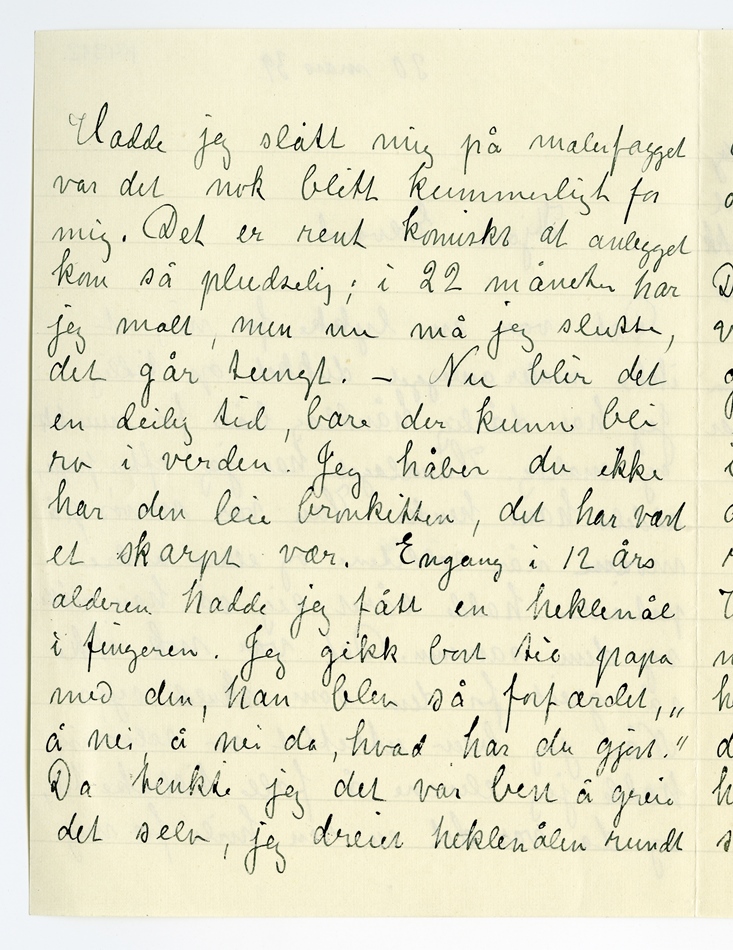 Hadde jeg slått mig på malerfagget
var det nok blitt kummerligt for
mig. Det er rent komiskt at anlegget
kom så pludselig; i 22 måneder har
jeg malt, men nu må jeg slutte,
det går tungt. — Nu blir det
en deilig tid, bare der kunne bli
ro i verden. Jeg håber du ikke
har den leie bronkitten, det har vært
et skarpt vær. Engang i 12 års
alderen hadde jeg fått en heklenål
i fingeren. Jeg gikk bort til papa
med den, han blev så forfærdet, „
å nei, å nei da, hvad har du gjort."
Da tenkte jeg det var best å greie
det selv, jeg dreiet heklenålen rundt